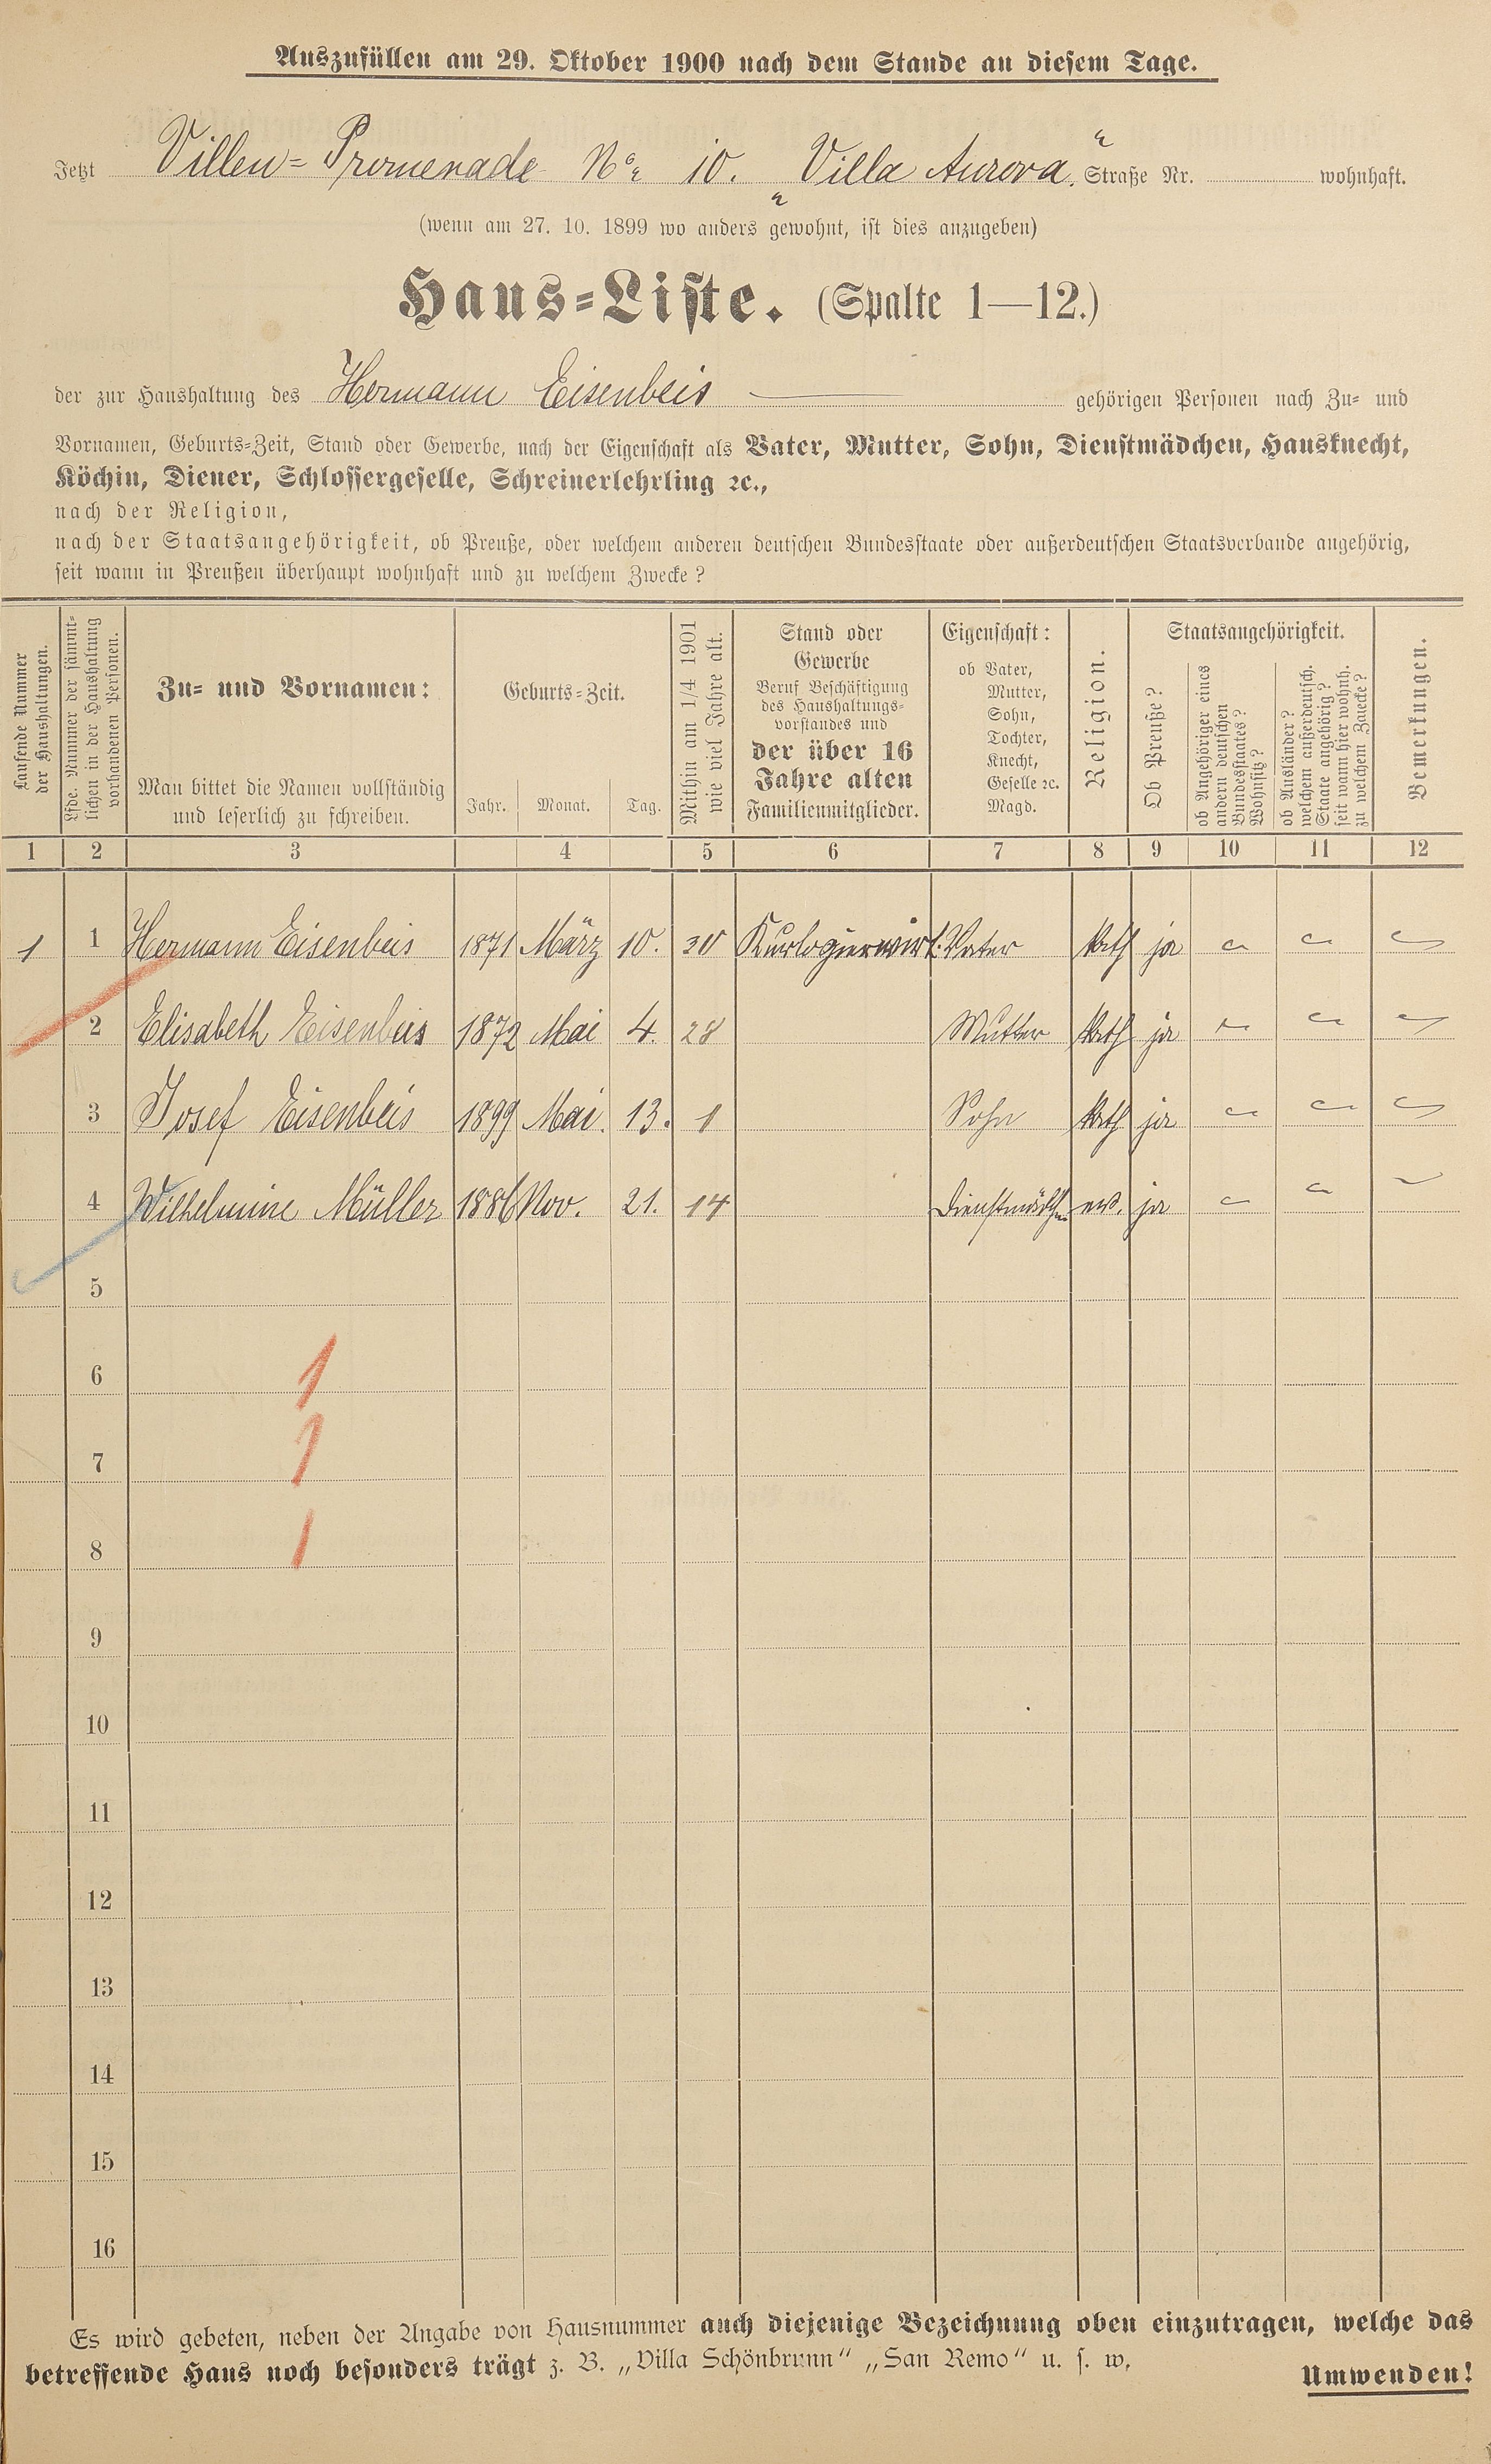 Auszufüllen am 29. Oktober 1900 nach dem Stande an diesem Tage.
Jetzt Villen=Promenade No 10. „Villa Aurora“ Straße Nr. wohnhaft.
(wenn am 27. 10. 1899 wo anders gewohnt, ist dies anzugeben)
Haus=Liste. (Spalte 1—12.)
der zur Haushaltung des Hermann Eisenbeis gehörigen Personen nach Zu= und
Vornamen, Geburts=Zeit, Stand oder Gewerbe, nach der Eigenschaft als Vater, Mutter, Sohn, Dienstmädchen, Hausknecht,
Köchin, Diener, Schlossergeselle, Schreinerlehrling ꝛc.,
nach der Religion,
nach der Staatsangehörigkeit, ob Preuße, oder welchem anderen deutschen Bundesstaate oder außerdeutschen Staatsverbande angehörig,
seit wann in Preußen überhaupt wohnhaft und zu welchem Zwecke?
Laufende Nummer
der Haushaltungen.
Lfde. Nummer der sämmt=
lichen in der Haushaltung
vorhandenen Personen.
Zu= und Vornamen:
Man bittet die Namen vollständig
und leserlich zu schreiben.
Geburts=Zeit.
Jahr. Monat. Tag.
Mithin am 1/4 1901
wie viel Jahre alt.
Stand oder
Gewerbe
Beruf Beschäftigung
des Haushaltungs=
vorstandes und
der über 16
Jahre alten
Familienmitglieder.
Eigenschaft:
ob Vater,
Mutter,
Sohn,
Tochter,
Knecht,
Geselle ꝛc.
Magd.
Religion.
Staatsangehörigkeit.
Ob Preuße?
ob Angehöriger eines
andern deutschen
Bundesstaates?
Wohnsitz?
ob Ausländer?
welchem außerdeutsch.
Staate angehörig?
seit wann hier wohnh.
zu welchem Zwecke?
Bemerkungen.
1 2 3 4 5 6 7 8 9 10 11 12
1 1 Hermann Eisenbeis 1871 März 10. 30 Kurlogierwirt. Vater kath ja
2 Elisabeth Eisenbeis 1872 Mai 4. 28 Mutter kath ja
3 Josef Eisenbeis 1899 Mai. 13. 1 Sohn kath ja
4 Wilhelmine Müller 1886 Nov. 21. 14 Dienstmädchen ev. ja
5
6 1
7 1
8 1
9
10
11
12
13
14
15
16
Es wird gebeten, neben der Angabe von Hausnummer auch diejenige Bezeichnung oben einzutragen, welche das
betreffende Haus noch besonders trägt z. B. „Villa Schönbrunn“ „San Remo“ u. s. w.
Umwenden!